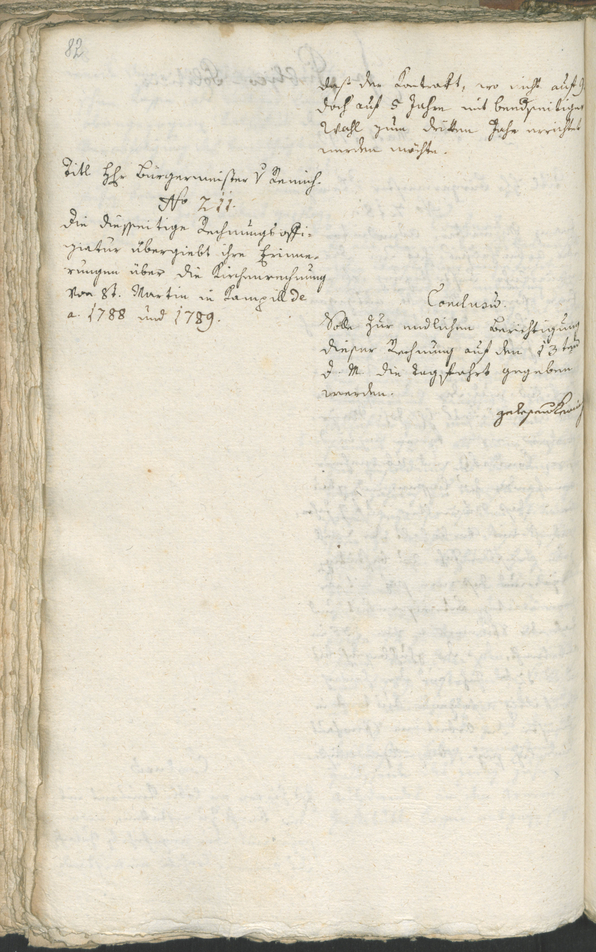 82
daß der Kontrakt, wo nicht auf 9
doch auf 5 Jahre mit beydseitiger
Wahl zum dritten Jahr errichtet
werden möchte.
Titl Hr Bürgermeister V Remich.
No 211.
Die diesseitige Rechnungsoffi-
ziatur übergiebt ihre Erinne-
rungen über die Kirchenrechnung
von St. Martin in Kampill de
a. 1788 und 1789.
Conclusum.
Solle zur endlichen Berichtigung
dieser Rechnung auf den 13ten
d. M. die Tagsfahrt gegeben
werden.